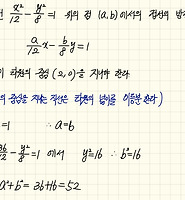 x²/12 - y²/8 = 1 위의 점 (a, b)에서의 접선의 방
a/12 x - b/8 y = 1
이 타원의 중심 (2, 0)을 지나야 한다
의 중심을 지나는 직선은 타원의 넓이를 이등분 한다)
=1 ∴ a=6
36/12 - y²/8 = 1 에서 y²=16 ∴ b²=16
a²+b²=36+16=52